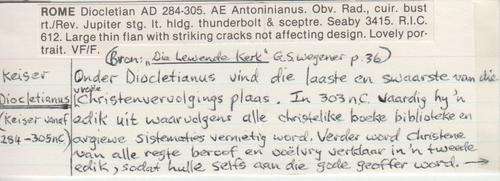 ROME Diocletian AD 284-305. AE Antoninianus. Obv. Rad., cuir. bust
rt./Rev. Jupiter stg. lt. hldg. thunderbolt & sceptre. Seaby 3415. R.I.C.
612. Large thin flan with striking cracks not affecting design. Lovely por-
trait. VF/F.
(Bron: „Die Lewende Kerk" G.S. Wegener p. 36)
Keiser
Diocletianus
(Keiser vanaf
284-305nC)
Onder Diocletianus vind die laaste en swaarste van die
vroeë
Christenvervolgings plaas. In 303 nC. vaardig hy 'n
edik uit waarvolgens alle christelike boeke biblioteke en
argiewe sistematies vernietig word. Verder word christene
van alle regte beroof en voëlvry verklaar in 'n tweede
edik, sodat hulle selfs aan die gode geoffer word. →